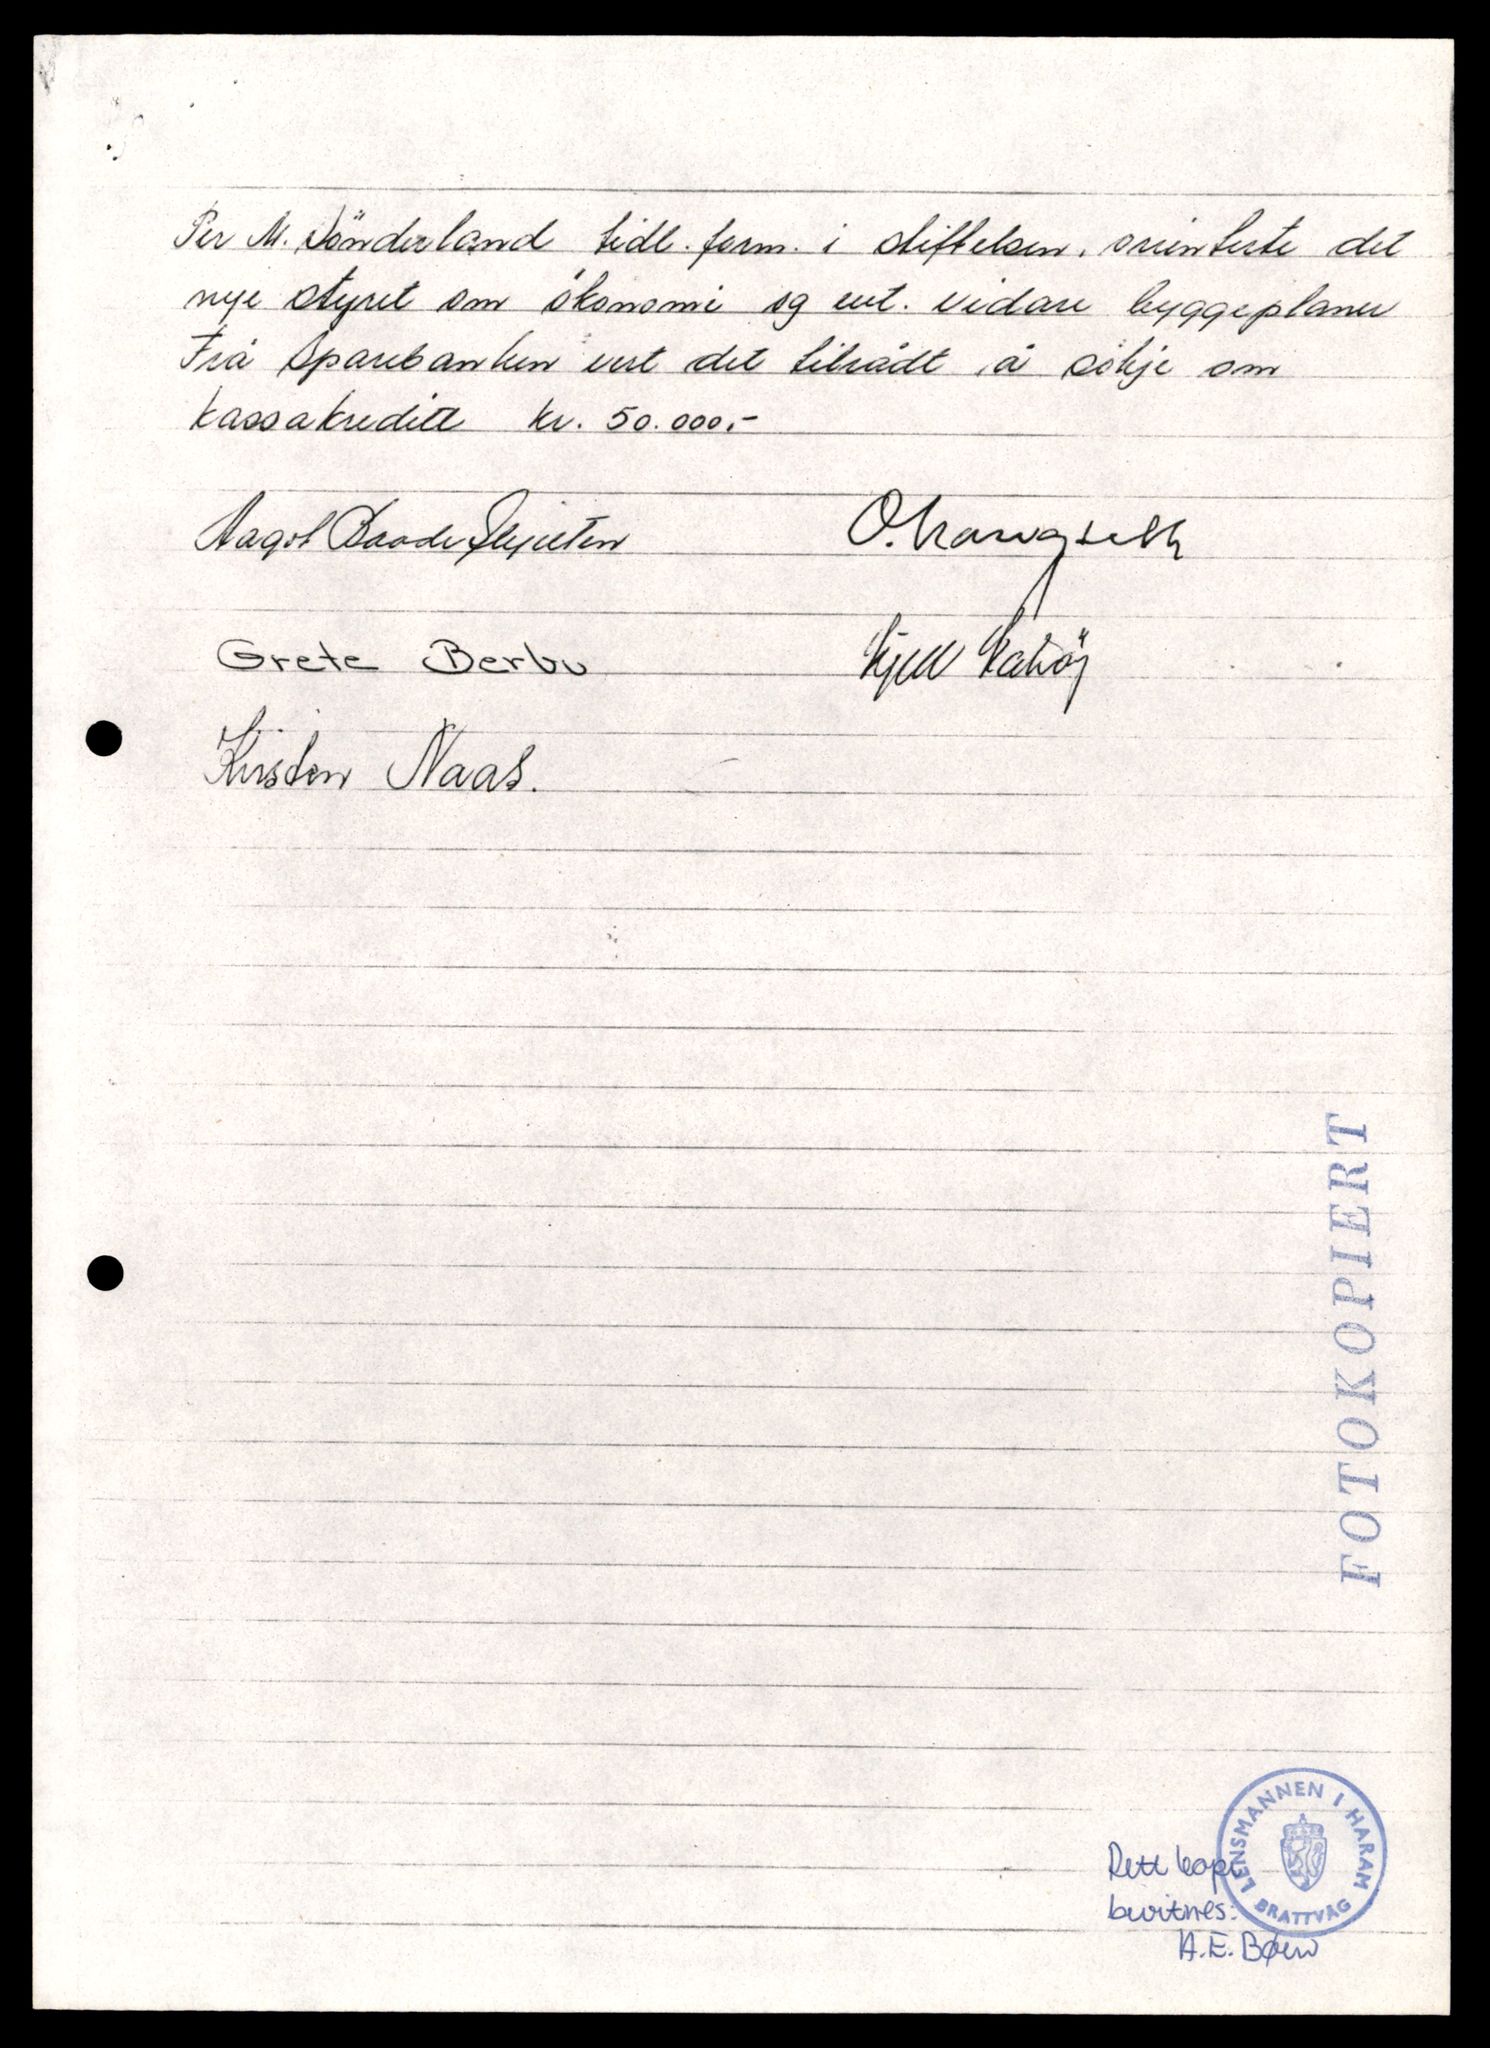 Per M. Sönderland tidl. form. i stiftelsen, orienterte det
nye styret om ökonomi og evt. vidare byggeplaner
Frå Sparebanken vert det tilrådt å sökje om
kassakreditt kr. 50.000,-
Aagot Baade
O.
Grete Berbu
Kjell
Kirsten Naas.
FOTOKOPIERT
LENSMANNEN I HARAM
BRATTVÅG
Rett kopi
bevitnes:
A.E. Bøen